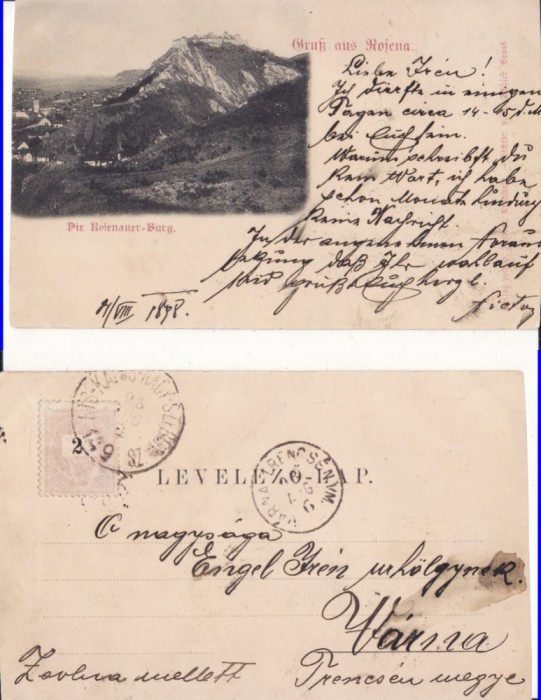 Gruß aus Rosena.
Liebe Irén!
Ich dürfte in einigen
Tagen circa 14-15 d. M.
bei Euch sein.
Warum schreibst du
kein Wort, ich habe
schon Monate hindurch
keine Nachricht.
In der angenehmen Voraus
setzung daß Ihr wohlauf
seid grüßt Euch herzl.
Victor
Die Rosenauer-Burg.
VIII 1898.
2
87
LEVELEZŐ-LAP.
VÁRNA TRENCSÉN VM.
Ő nagysága
Engel Irén urhölgynek.
Várna
Zsolna mellett
Trencsén megye